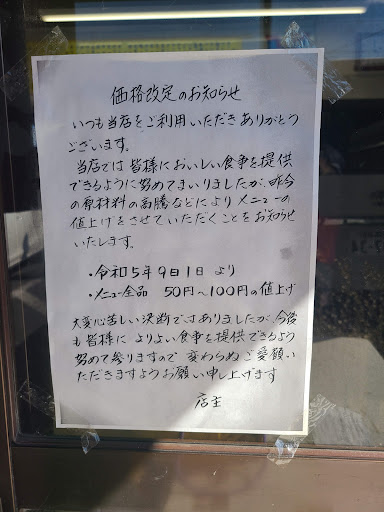 価格改定のお知らせ
いつも当店をご利用いただきありがとう
ございます。
当店では皆様においしい食事を提供
できるように努めてまいりましたが、昨今
の原材料の高騰などによりメニューの
値上げをさせていただくことをお知らせ
いたします。
・令和5年9日1日より
・メニュー全品 50円〜100円の値上げ
大変心苦しい決断ではありましたが、今後
も皆様によりよい食事を提供できるよう
努めて参りますので変わらぬご愛顧い
ただきますようお願い申し上げます
店主